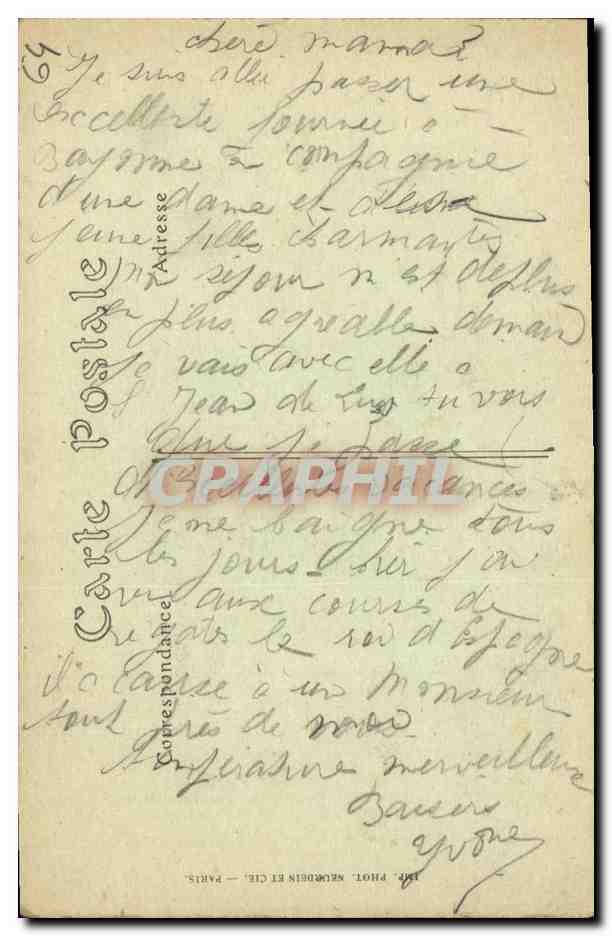 chère maman
Je suis allée passer une
excellente journée à
Bayonne en compagnie
d'une dame et deux
jeune filles charmantes
Mon séjour n'est de plus
en plus agréable demain
je vais avec elle a
St Jean de Luz tu vois
que je passe
d'excellente vacances
je me baigne tous
les jours - hier j'ai
vu aux courses de
régates le roi d'Espagne
il a causé à un Monsieur
tout près de nous
température merveilleuse
Baisers
Yvonne
Carte postale
Correspondance
Adresse
IMP. PHOT. NEURDEIN ET CIE. — PARIS.
59
CPAPHIL